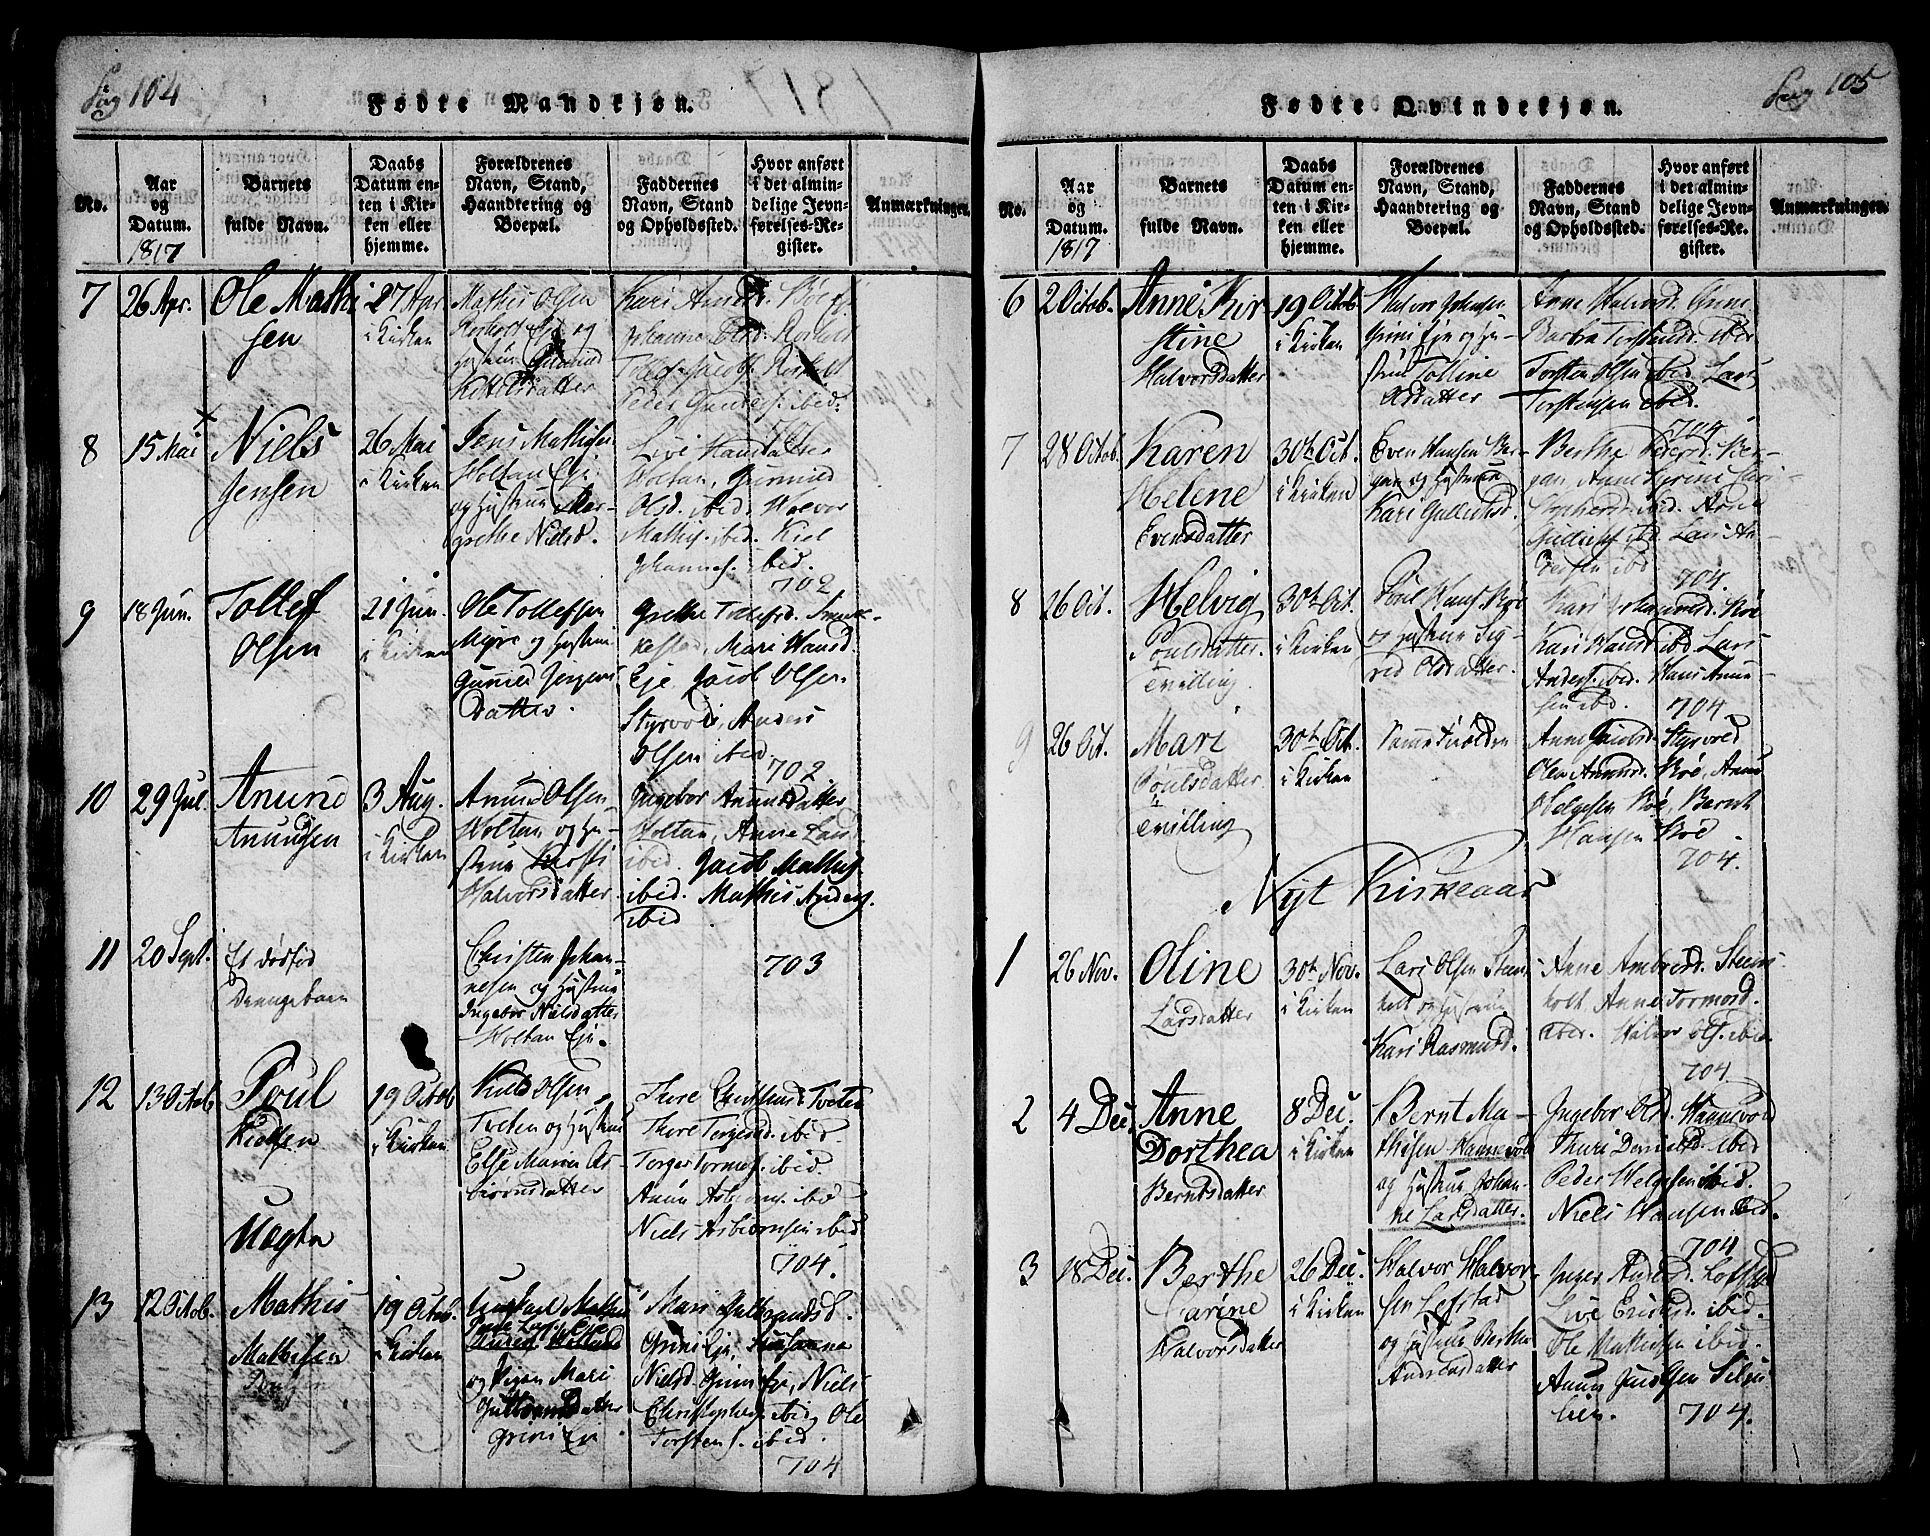 Pag 104
Fødte Mandkjøn.
No.
Aar og Datum.
1817
Barnets fulde Navn.
Daabs Datum enten i Kirken eller hjemme.
Forældrenes Navn, Stand, Haandtering og Boepæl.
Faddernes Navn, Stand og Opholdssted.
Hvor anført i det almindelige Jevnførelses-Register.
Anmærkninger.
7 26 Apr. Ole Mathisen 27 Apr i Kirken
Mathis Olsen Eje og Hustrue Gunild Kittilsdatter
8 15 Mai Niels Jensen 26 Mai i Kirken
Jens Mathisen Holtan Eje og Hustrue Margrethe Nielsd.
Live Hansdatter Holtan, Gunnild Olsd. ibid. Halvor Mathis. ibid. Kiel Johannes. ibid.
702
9 18 Jun. Tollef Olsen 21 Jun. i Kirken
Ole Tollefsen Myre og Hustrue Gunild Jørgensdatter.
Grethe Tollefsd. Mari Hansd. Eje. Jacob Olsen. Styrvold, Anders Olsen ibid.
702
10 29 Jul. Anund Anundsen 3 Aug. i Kirken
Anund Olsen Holtan og Hustrue Halvorsdatter
Ingebor Anundsdatter Holtan, Anne Larsd. ibid. Jacob Mathis. ibid. Mathis Anders. ibid
703
11 20 Sept. Et dødfød Drengebarn
Christen Johannesen og Hustrue Ingebor Nilsdatter Holtan Eje.
12 13 Octob Poul 19 Octob i Kirken
Olsen Tveten og Hustrue Else Maria Asbiørnsdatter
Thore Tveten Thore Torgersd. ibid. Torger Tormos. ibid. Anun Asbiorns. ibid Niels Asbiørnsen ibid
704.
Uægte
13 12 Octob. Mathis Mathisen 19 Octob. i Kirken
og Pigen Mari Gulbrandsdatter Grini Eje
Mari Gulbrandsd. Grini Eje, Susanna Nielsd. Grini Eje, Niels Christophers. ibid, Ole Torstens. ibid.
704
Pag 105
Fødte Qvindekjøn.
No.
Aar og Datum.
1817
Barnets fulde Navn.
Daabs Datum enten i Kirken eller hjemme.
Forældrenes Navn, Stand, Haandtering og Boepæl.
Faddernes Navn, Stand og Opholdssted.
Hvor anført i det almindelige Jevnførelses-Register.
Anmærkninger.
6 2 Octob. Anne Kirstine Halvorsdatter 19 Octob i Kirken
Halvor Johansen Grini Eje og Hustrue Tolline Olsdatter
Anne Halvorsd. Grini Barbra Torstensd. ibid. Torsten Olsen ibid. Lars Torstensen ibid.
704
7 28 Octob. Karen Helene Evensdatter 30te Oct. i Kirken
Even Hansen Bergan og Hustrue Kari Gulliksd.
Berthe Pedersd. Bergan, Anne ibid. Gulliks. ibid. Lars Andersen ibid
704.
8 26 Oct. Helvig Poulsdatter. Tvilling 30te Oct. i Kirken
Poul Hans. Røe og Hustrue Sigrid Olsdatter.
Kari Røe Kari Hansd ibid. Lars Anders. ibid. Hans Anunsen ibid.
704
9 26 Oct. Mari Poulsdatter Tvilling 30te Oct. i Kirken
Samme Forældre
Anne Jacobsd. Styrvold Olea Anunsd. Røe, Anun Helgesen Røe, Bernt Hansen Røe
704.
Nyt Kirkeaar
1 26 Nov. Oline Larsdatter 30te Nov. i Kirken
Lars Olsen Steensholt og Hustrue Kari Rasmusd.
Anne Ambrosd. Steensholt Anne Tormosd. ibid. Halvor Ols. ibid.
704.
2 4 Dec. Anne Dorthea Berntsdatter 8 Dec. i Kirken
Bernt Mathisen Hannevold og Hustrue Johanne Larsdatter.
Ingebor Olsd. Hannevold Thuri ibid Peder Helgesen ibid. Niels Hansen ibid.
704
3 18 Dec. Berthe Carine Halvorsdatter 26 Dec. i Kirken
Halvor Halvorsen Lefstad og Hustrue Berthe Andreasdatter
Inger Andersd. Lefstad Live Ericksd. ibid. Ole Mathisen ibid. Anun Jacobsen Siljulien.
704.